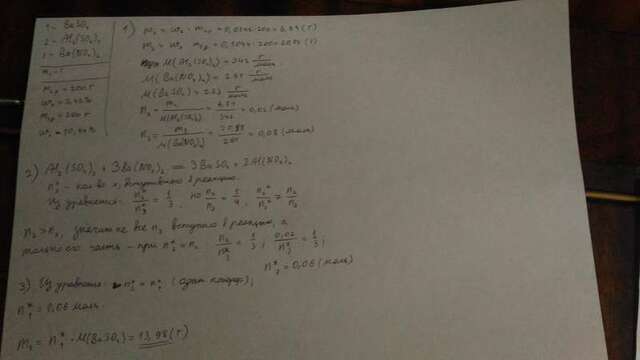 1 - BaSO₄
2 - Al₂(SO₄)₃
3 - Ba(NO₃)₂
m₁ - ?
m₂р = 200 г
ω₂ = 3,42%
m₃р = 200 г
ω₃ = 10,44%
1) m₂ = ω₂ · m₂р = 0,0342 · 200 = 6,84 (г)
m₃ = ω₃ · m₃р = 0,1044 · 200 = 20,88 (г)
M(Al₂(SO₄)₃) = 342 г/моль
M(Ba(NO₃)₂) = 261 г/моль
M(BaSO₄) = 233 г/моль
n₂ = m₂ / M(Al₂(SO₄)₃) = 6,84 / 342 = 0,02 (моль)
n₃ = m₃ / M(Ba(NO₃)₂) = 20,88 / 261 = 0,08 (моль)
2) Al₂(SO₄)₃ + 3Ba(NO₃)₂ = 3BaSO₄ + 2Al(NO₃)₃
n* - кол-во в, вступившего в реакцию
Из уравнения: n₂*/n₃* = 1/3 : но n₂/n₃ = 1/4, n₂*/n₃* ≠ n₂/n₃
n₃ > n₂, значит не все n₃ вступило в реакцию, а
только его часть - при n₂* = n₂ n₂/n₃* = 1/3 ; 0,02/n₃* = 1/3 ;
n₃* = 0,06 (моль)
3) Из уравнения n₃* = n₁* (один коэфф) ;
n₁* = 0,06 моль
m₁ = n₁* · M(BaSO₄) = 13,98 (г)